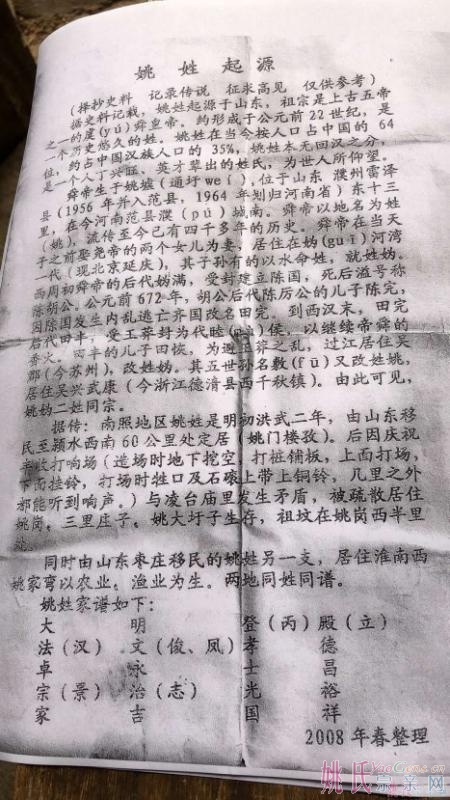 姚 姓 起 源
(择抄史料 记录传说 征求高见 仅供参考)
据史料记载，姚姓起源于山东，祖宗是上古五帝
之一的虞(yú)舜皇帝。约形成于公元前22世纪，是
一个历史悠久的姓。姚姓在当今按人口占中国的 64
位，约占中国汉族人口的 35%，姚姓本无回汉之分，
是一个人丁兴旺、英才辈出的姓氏，为世人所仰望。
舜帝生于姚墟(通圩weí)，位于山东 濮州雷泽
县(1956 年并入范县，1964 年划归河南省)东十三
里，在今河南范县濮(pú)城南。舜帝以地名为姓
(姚)，流传至今已有四千多年的历史。舜帝在当天
子之前娶尧帝的两个女儿为妻，居住在妫(guī)河湾
一代(现北京延庆)，其子孙有的以水命姓，就姓妫。
西周初舜帝的后代妫满，受封建立陈国，死后谥号称
陈胡公。公元前 672 年，胡公后代陈厉公的儿子陈完，
因陈国发生内乱逃亡齐国改名田完。到西汉末，田完
后代田丰，受王莽封为代睦侯，以继续帝舜的
香火。田丰的儿子田恢，为避王莽之乱，过江居住吴
郡(今苏州)，改姓妫。其五世孙名敷(fū)又改姓姚，
居住吴兴武康(今浙江德清县西千秋镇)。由此可见，
姚妫二姓同宗。
据传：南照地区姚姓是明初洪武二年，由山东移
民至颍水西南 60 公里处定居(姚门楼孜)。后因庆祝
丰收打响场(造场时地下挖空，打桩铺板，上面打场，
下面挂铃，打场时牲口及石磙上带上铜铃，几里之外
都能听到响声。)与凌台庙里发生矛盾，被疏散居住
姚岗，三里庄子，姚大圩子生存，祖坟在姚岗西半里
处。
同时由山东枣庄移民的姚姓另一支，居住淮南西
姚家弯以农业，渔业为生。两地同姓同谱。
姚姓家谱如下：
大 明 登(丙) 殿(立)
法(汉) 文(俊、凤) 孝 德
卓 永 士 昌
宗(景) 治(志) 光 裕
家 吉 国 祥
2008 年春整理
姚氏宗亲网